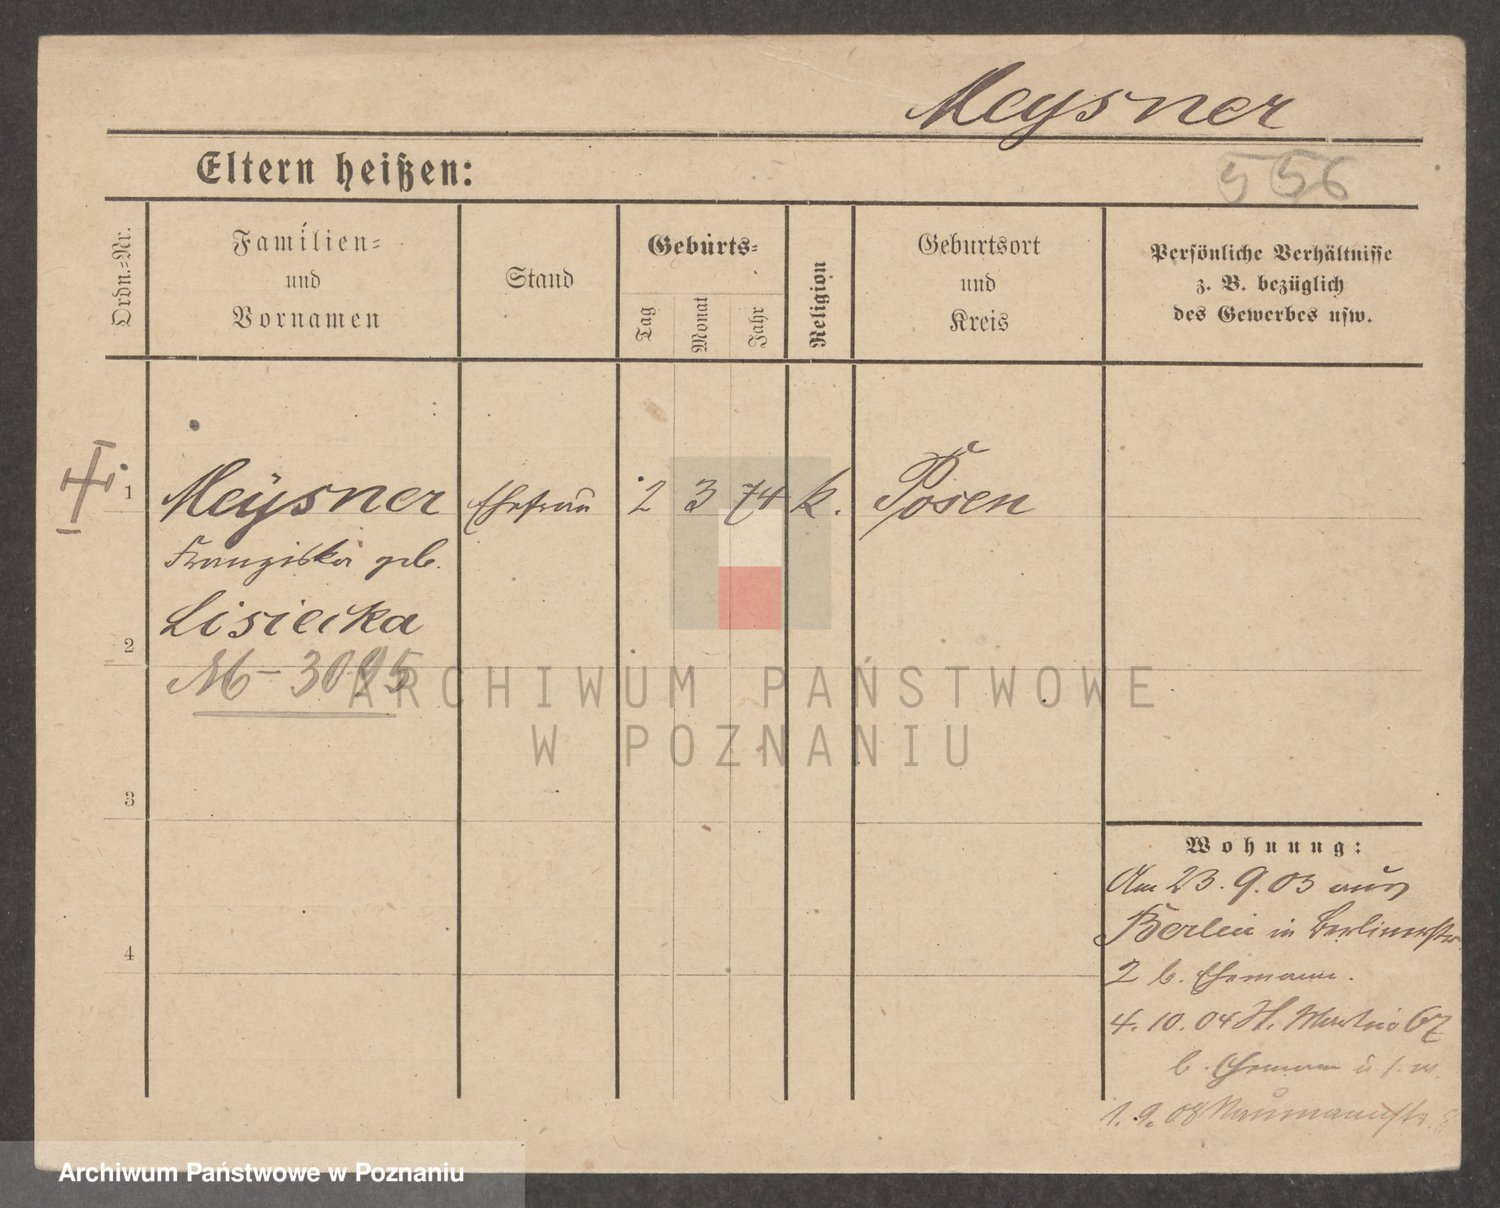 Meysner
Eltern heißen:
556
Ordn.-Nr.
Familien-
und
Vornamen
Stand
Geburts-
Tag
Monat
Jahr
Religion
Geburtsort
und
Kreis
Persönliche Verhältnisse
z. B. bezüglich
des Gewerbes usw.
1
Meysner Ehefrau 2 3 74 k. Posen
Franziska geb.
Lisiecka
2
M-3095
ARCHIWUM PAŃSTWOWE
W POZNANIU
3
4
Wohnung:
Am 23.9.03 aus
Berlin in Berlinerstr.
2 b. Ehemann.
4.10.04 St. Martin 67
b. Ehemann u. s. w.
1.9.08 Naumannstr.
Archiwum Państwowe w Poznaniu